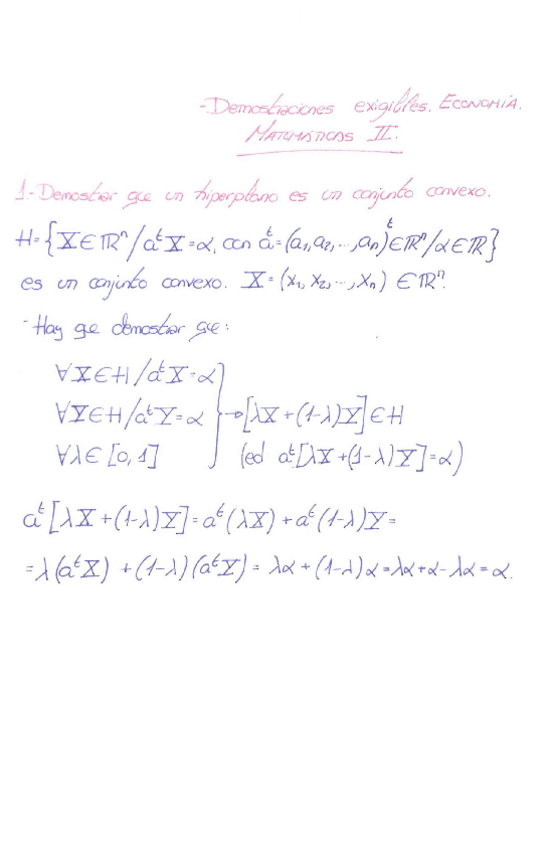 -Demostraciones exigibles. ECONOMÍA.
MATEMÁTICAS II.
1-Demostrar que un hiperplano es un conjunto convexo.
H={X∈ℝⁿ/aᵗX=α, con aᵗ=(a₁,a₂,...,aₙ)ᵗ∈ℝⁿ/α∈ℝ}
es un conjunto convexo. X=(x₁,x₂,...,xₙ)∈ℝⁿ.
-Hay qe demostrar qe:
∀X∈H/aᵗX=α
∀Y∈H/aᵗY=α }→[λX+(1-λ)Y]∈H
∀λ∈[0,1] (ed aᵗ[λX+(1-λ)Y]=α)
aᵗ[λX+(1-λ)Y]=aᵗ(λX)+aᵗ(1-λ)Y=
=λ(aᵗX)+(1-λ)(aᵗY)=λα+(1-λ)α=λα+α-λα=α.